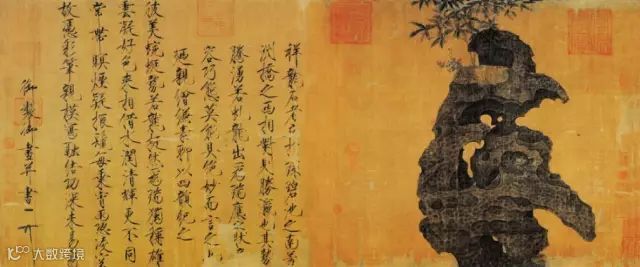 祥龍石者立於環碧池之南芳
洲橋之西相對則勝瀛也其勢
騰湧若虬龍出為瑞應之狀奇
容巧態莫能具絕妙而言之也
廼親繪縑素聊以四韻紀之
彼美蜿蜒勢若龍挺然為瑞獨稱雄
雲凝好色來相借水潤清輝更不同
常帶暝煙疑振鬣每乘宵雨恐凌空
故憑彩筆親模寫融結功深未易
御製御畫并書
大数跨境